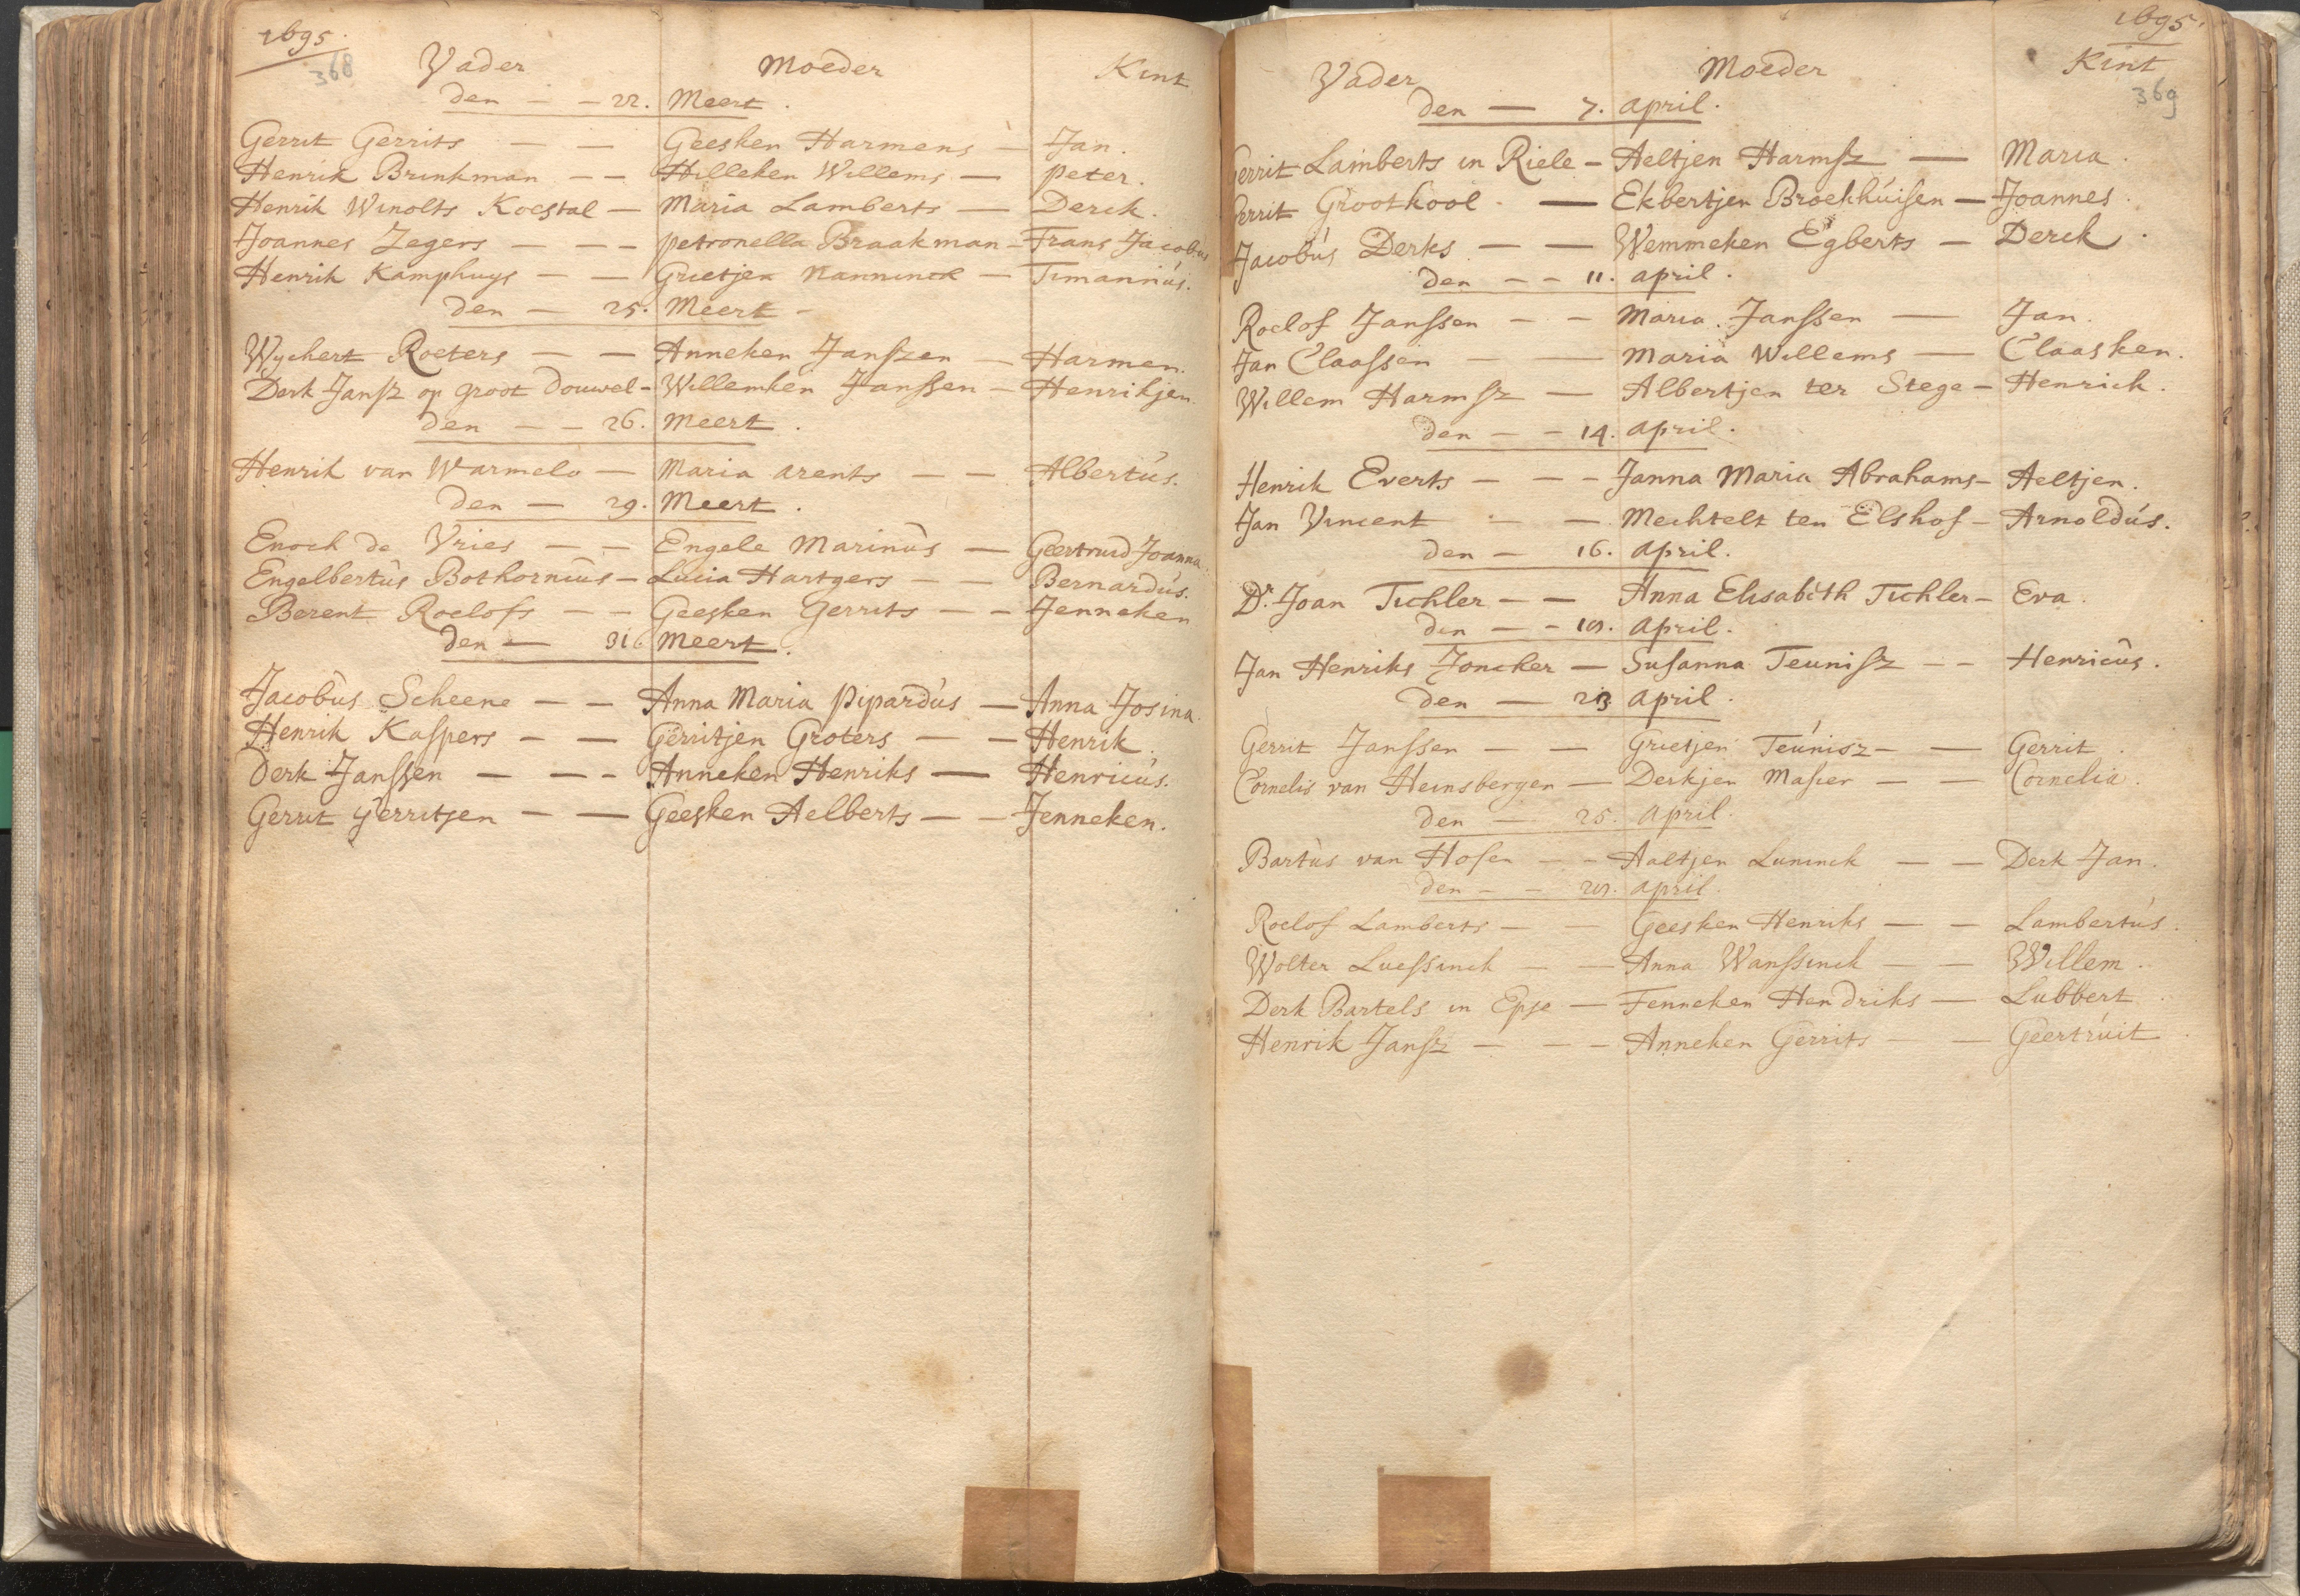 1695.
368
Vader Moeder Kint
den — — 22. Meert.
Gerrit Gerrits — — Geesken Harmens — Jan.
Henrik Brinkman — — Hilleken Willems — Peter.
Henrik Winolts Koestal — Maria Lamberts — Derck.
Joannes Zegers — — — Petronella Braakman — Frans Jacobus
Henrik Kamphuys — — Grietjen Nanninck — Timannus.
den — 25. Meert —
Wychert Roeters — — Anneken Janszen — Harmen.
Derk Jansz op groot Douwel — Willemken Janssen — Henrikjen.
den — — 26. Meert.
Henrik van Warmelo — Maria Arents — — Albertus.
den — 29. Meert.
Enoch de Vries — — Engele Marinus — Geertruid Joanna.
Engelbertus Bothornius — Lucia Hartgers — — Bernardus.
Berent Roelofs — — Geesken Gerrits — — Jenneken
den — 31 Meert.
Jacobus Scheene — — Anna Maria Pipardus — Anna Josina.
Henrik Kaspers — — Gerritjen Groters — — Henrik.
Derk Janssen — — — Anneken Henriks — Henricus.
Gerrit Gerritsen — — Geesken Aelberts — — Jenneken.
1695.
369
Vader Moeder Kint
den — 7. April.
Gerrit Lamberts in Riele — Aeltjen Harmsz — Maria.
Gerrit Grootkool — Ekbertjen Broekhuisen — Joannes.
Jacobus Derks — — Wemmeken Egberts — Derck.
den — — 11. April.
Roelof Janssen — — Maria Janssen — Jan.
Jan Claassen — — Maria Willems — Claasken.
Willem Harmsz — Albertjen ter Stege — Henrick.
den — — 14. April.
Henrik Everts — — — Janna Maria Abrahams — Aeltjen.
Jan Vincent — Mechtelt ten Elshof — Arnoldus.
den — 16. April.
Dr. Joan Tichler — — Anna Elisabeth Tichler — Eva.
den — — April.
Jan Henriks Joncker — Susanna Teunisz — — Henricus.
den — 23 April.
Gerrit Janssen — — Grietjen Teunisz — — Gerrit.
Cornelis van Heinsbergen — Derkjen Masier — — Cornelia.
den — 25. April.
Bartus van Hofen — — Aaltjen Luninck — — Derk Jan.
den — — April.
Roelof Lamberts — — Geesken Henriks — — Lambertus.
Wolter Luessinck — — Anna Wanssinck — — Willem.
Derk Bartels in Epse — Fenneken Hendriks — Lubbert.
Henrik Jansz — — — Anneken Gerrits — — Geertruit.